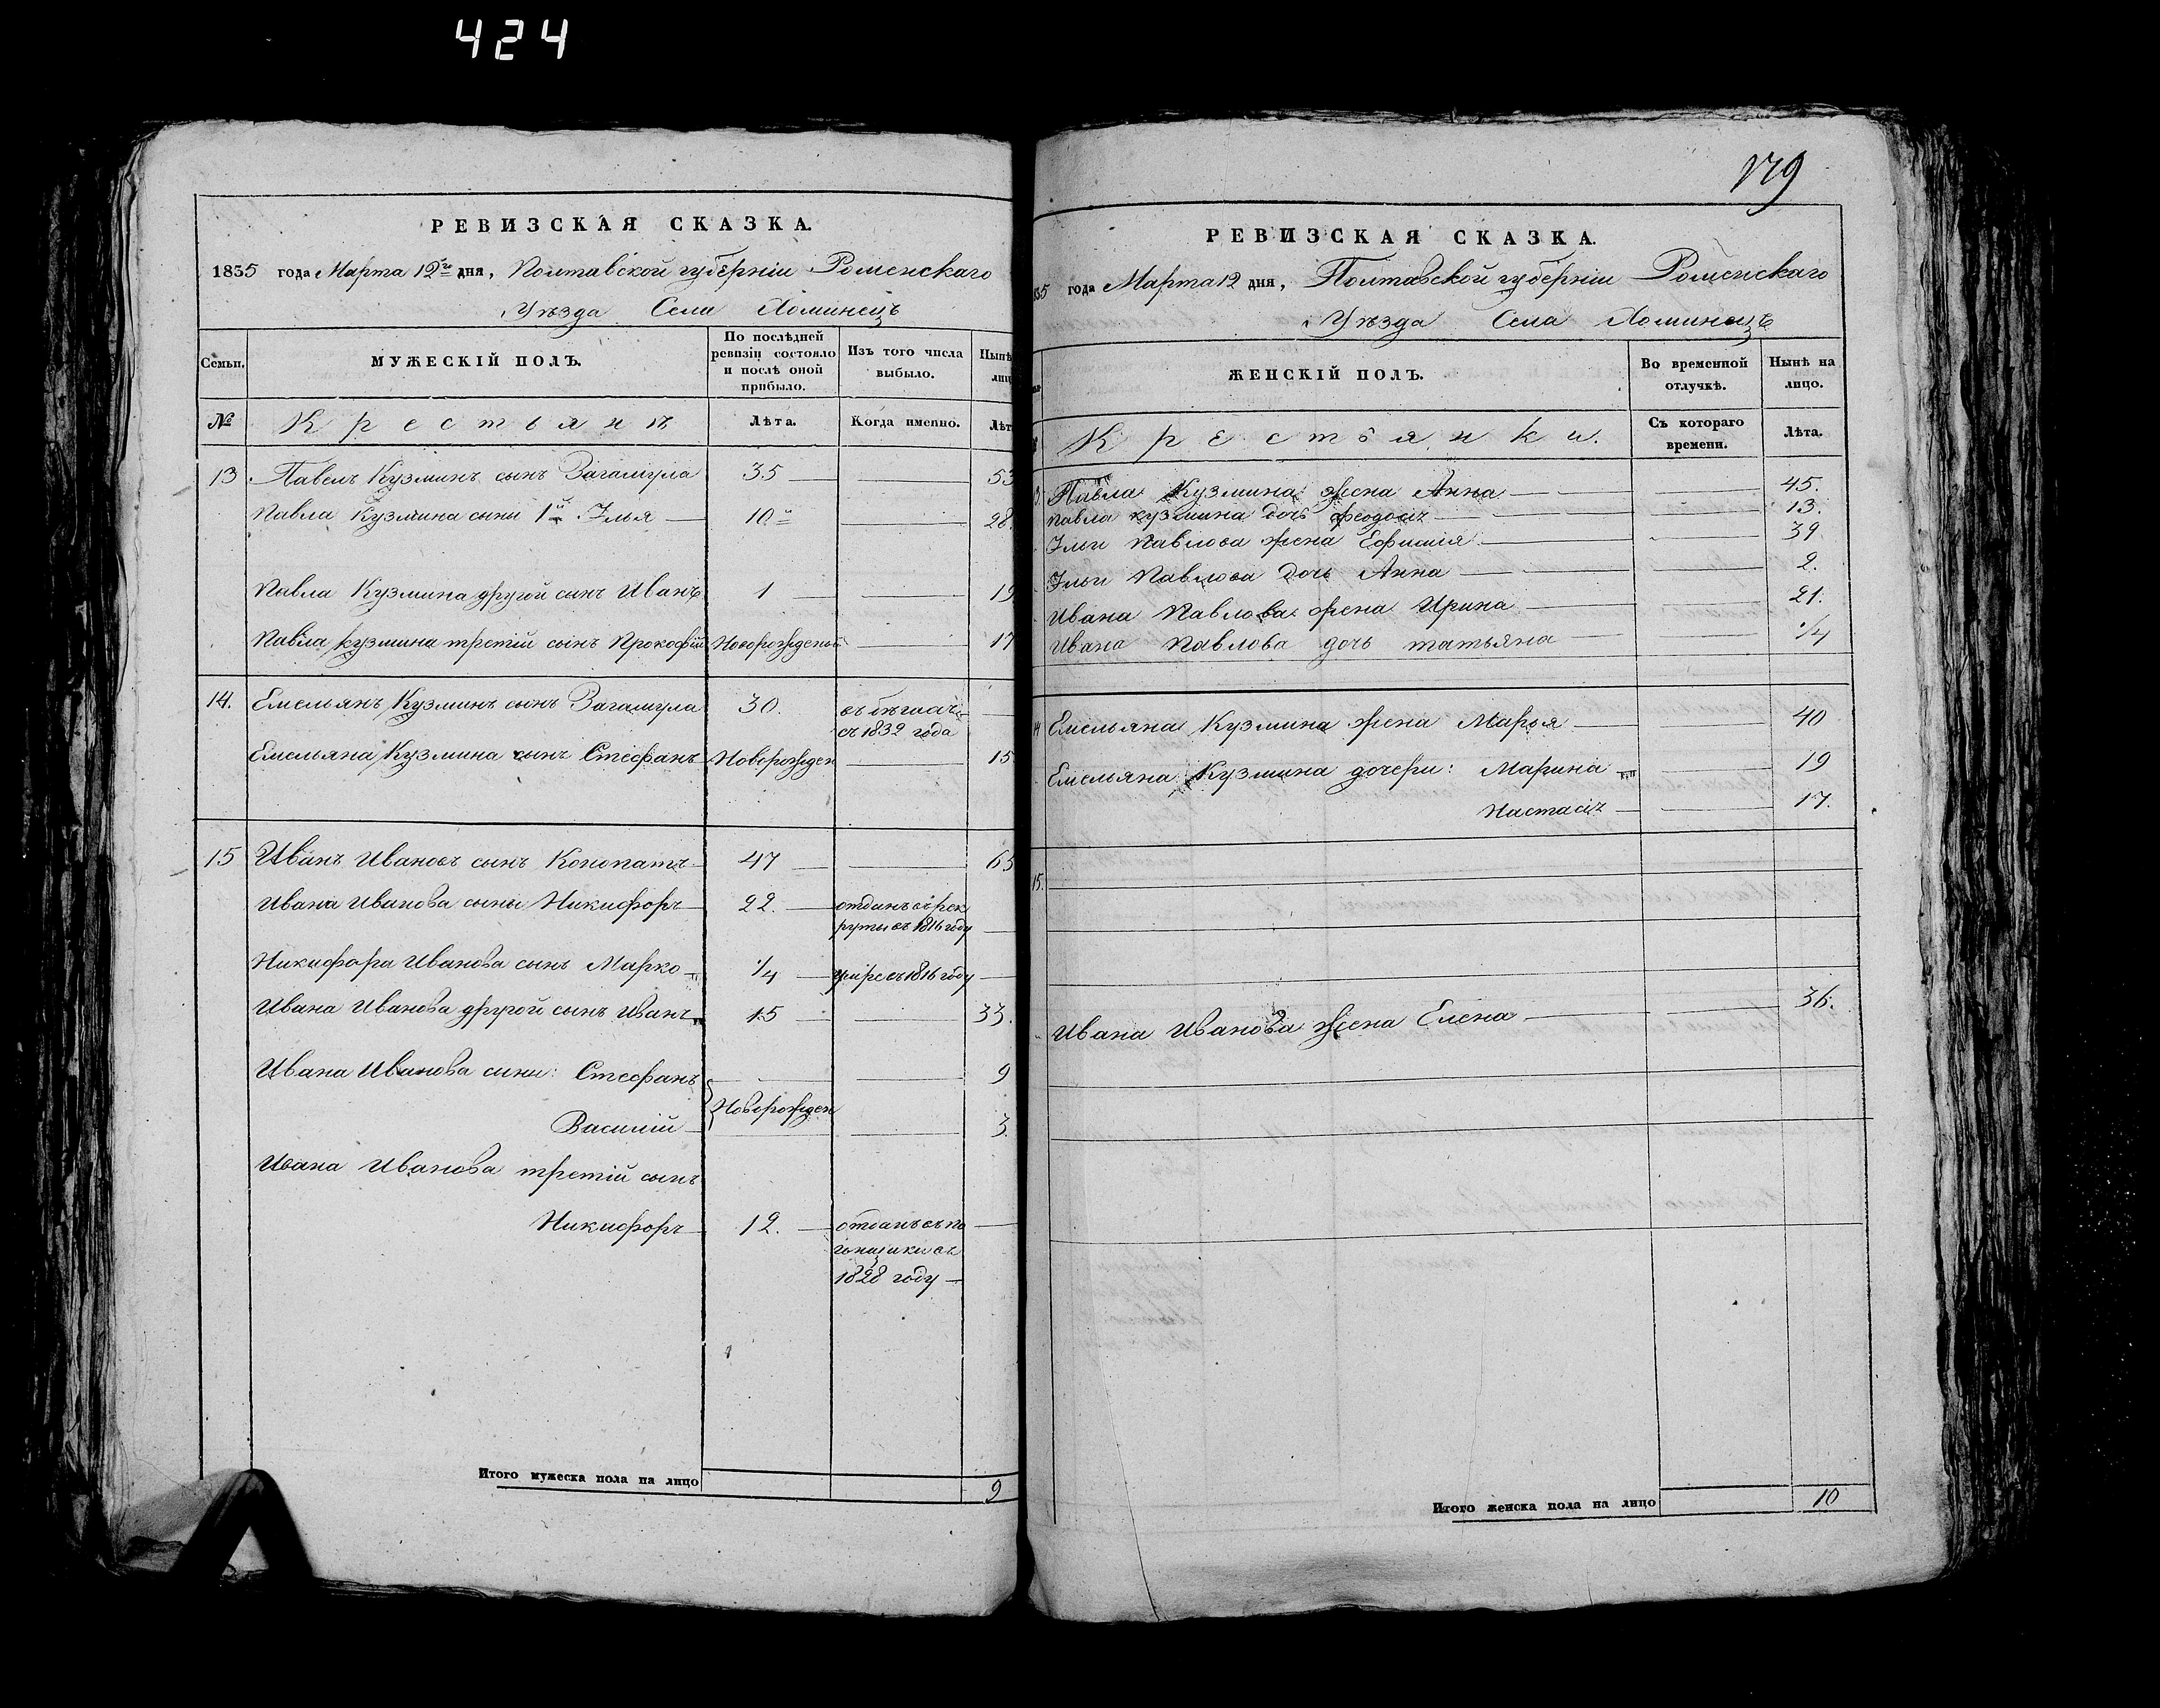 424
РЕВИЗСКАЯ СКАЗКА.
1835 года Марта 12го дня, Полтавской губерніи Роменскаго
Уѣзда Села Хоминецъ
Семьи.
МУЖЕСКІЙ ПОЛЪ.
По послѣдней ревизіи состояло и послѣ оной прибыло.
Изъ того числа выбыло.
Нынѣ лиц
№
Крестьянъ
Лѣта.
Когда именно.
Лѣт
13 Павелъ Кузминъ сынъ Загамула 35 53
Павла Кузмина сыны 1й Илья 10 28.
Павла Кузмина другой сынъ Иванъ 1 19
Павла Кузмина третій сынъ Прокофій Новорожденый 17
14. Емельянъ Кузминъ сынъ Загамула 30.
съ 1832 года
Емельяна Кузмина сынъ Стефанъ Новорожден 15
15 Иванъ Ивановъ сынъ Конопатъ 47 65
Ивана Иванова сыны Никифоръ 22. отданъ въ рек
руты въ 1816 году
Никифора Иванова сынъ Марко 1/4 умре въ 1816 году
Ивана Иванова другой сынъ Иванъ 15 33.
Ивана Иванова сины: Стефанъ 9
Новорожден
Василій 3.
Ивана Иванова третій сынъ
Никифоръ 12. отданъ въ по
гонщики въ
1828 году
Итого мужеска пола на лицо 9
179
РЕВИЗСКАЯ СКАЗКА.
35 года Марта 12 дня, Полтавской губерніи Роменскаго
Уѣзда Села Хоминецъ
ЖЕНСКІЙ ПОЛЪ.
Во временной отлучкѣ.
Нынѣ на лицо.
Крестьянки.
Съ котораго времени.
Лѣта.
Павла Кузмина жена Анна 45.
Павла Кузмина дочь Феодосія 13.
Ильи Павлова жена Ефимія 39.
Ильи Павлова дочь Анна 2.
Ивана Павлова жена Ирина 21.
Ивана Павлова дочь татьяна 1/4
14 Емельяна Кузмина жена Марья 40
Емельяна Кузмина дочери: Марина 19
Настасія 17.
15.
Ивана Иванова жена Елена 36.
Итого женска пола на лицо 10